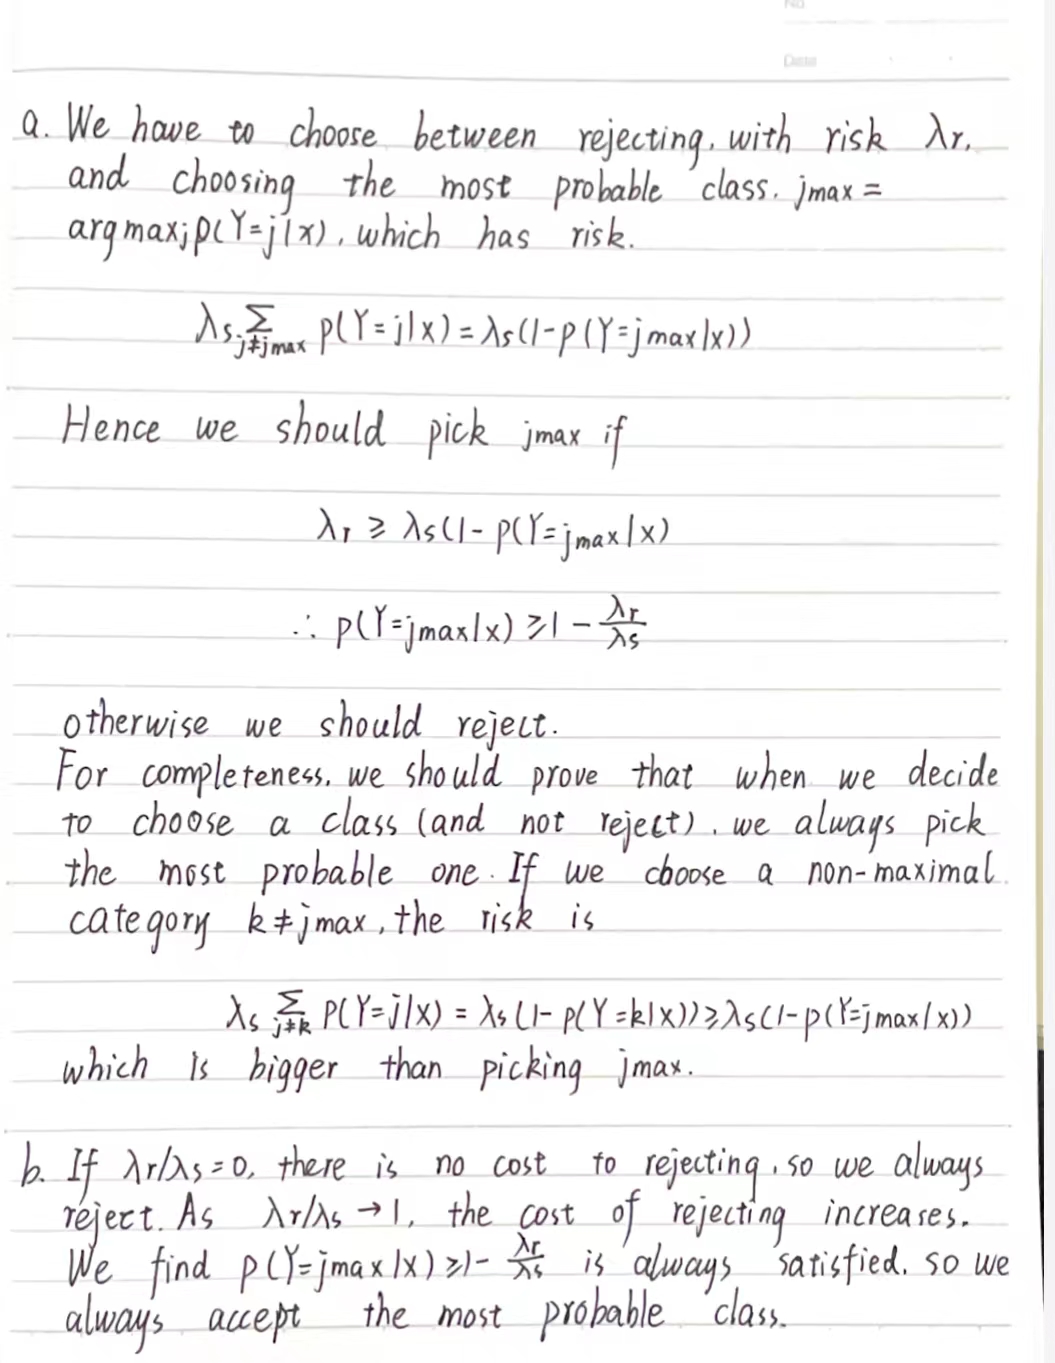 No
Date
a. We have to choose between rejecting, with risk λr,
and choosing the most probable class, jmax =
argmaxⱼp(Y=j|x), which has risk.
λs Σ_{j≠jmax} p(Y=j|x) = λs(1-p(Y=jmax|x))
Hence we should pick jmax if
λr ≥ λs(1-p(Y=jmax|x)
∴ p(Y=jmax|x) ≥ 1 - λr/λs
otherwise we should reject.
For completeness, we should prove that when we decide
to choose a class (and not reject), we always pick
the most probable one. If we choose a non-maximal
category k≠jmax, the risk is
λs Σ_{j≠k} p(Y=j|x) = λs(1-p(Y=k|x)) ≥ λs(1-p(Y=jmax|x))
which is bigger than picking jmax.
b. If λr/λs=0, there is no cost to rejecting, so we always
reject. As λr/λs →1, the cost of rejecting increases.
We find p(Y=jmax|x) ≥ 1- λr/λs is always satisfied, so we
always accept the most probable class.